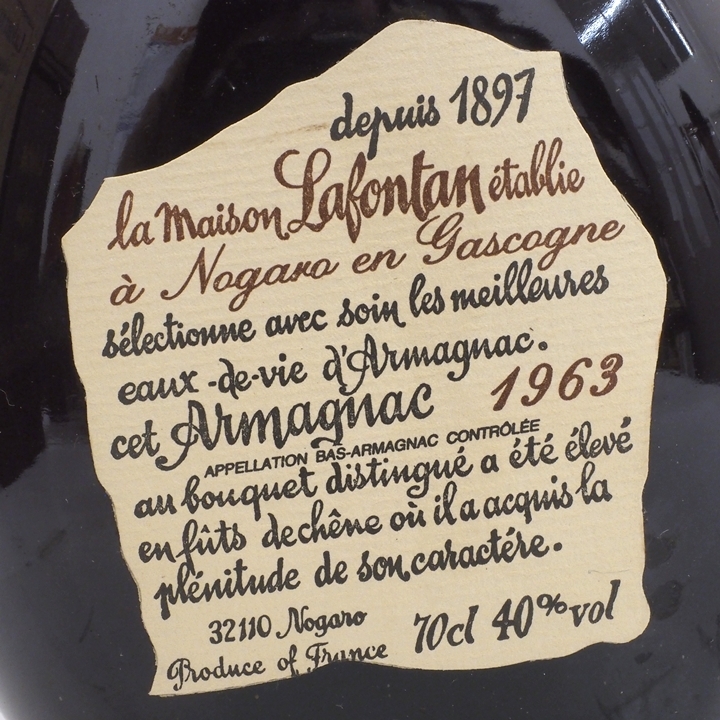 depuis 1897
la Maison Lafontan établie
à Nogaro en Gascogne
sélectionne avec soin les meilleures
eaux-de-vie d'Armagnac.
cet Armagnac 1963
APPELLATION BAS-ARMAGNAC CONTRÔLÉE
au bouquet distingué a été élevé
en fûts de chêne où il a acquis la
plénitude de son caractére.
32110 Nogaro 70cl 40% vol
Produce of France